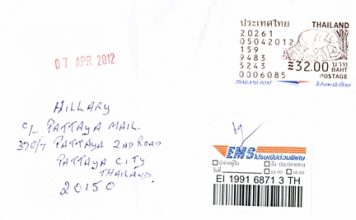 ประเทศไทย THAILAND
20261
05042012
159
9483 ≈32.00 บาท
5243 BAHT
0006085 POSTAGE
THAILAND POST ไปรษณีย์ไทย
07 APR 2012
HILLARY
C/- PATTAYA MAIL.
370/7 PATTAYA 2ND ROAD
PATTAYA CITY
THAILAND.
20150
EMS ไปรษณีย์ด่วนพิเศษ
EI 1991 6871 3 TH